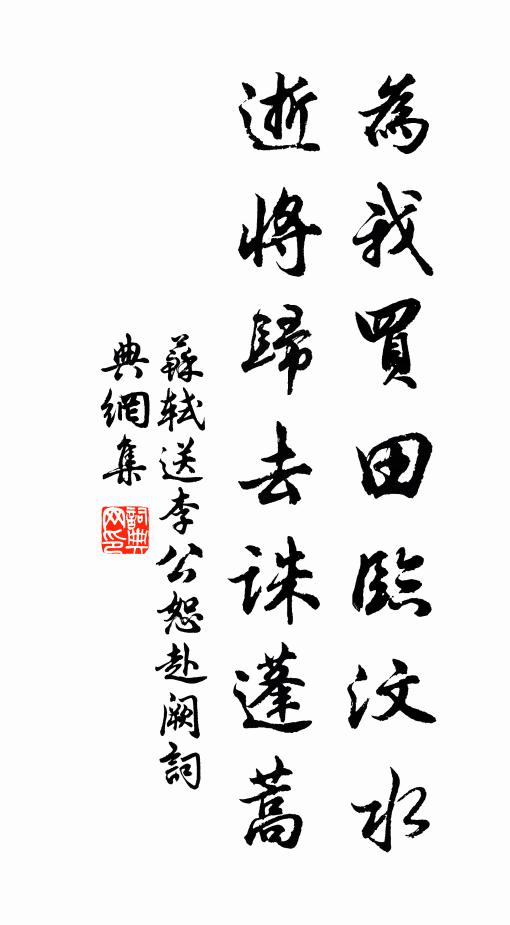 為我買田臨汶水
逝將歸去誅蓬蒿
蘇軾送李公恕赴闕詞
典網集
詞典网印